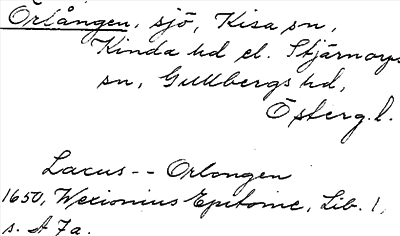 Örlången, sjö, Kisa sn,
Kinda hd el. Stjärnorps
sn, Gullbergs hd,
Österg.l.
Lacus -- Orlongen
1650, Wexionius Epitome, Lib. 1,
s. A 7a.